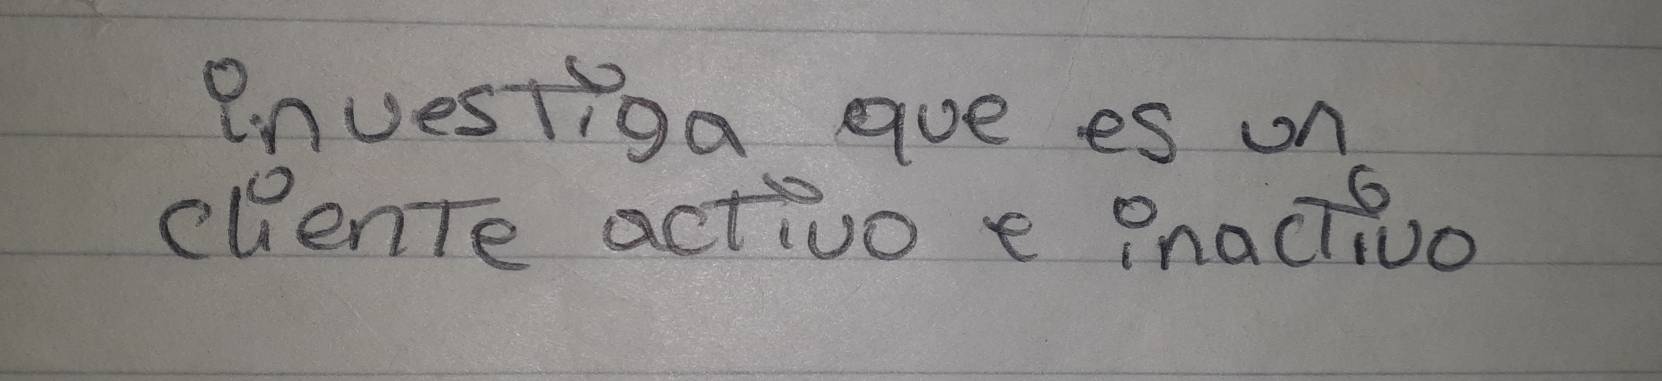 investiga que es un
cliente activo e inactivo